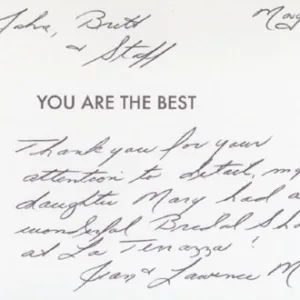 Britt
& Staff
YOU ARE THE BEST
Thank you for your
attention to detail, my
daughter Mary had a
wonderful Bridal Sho
at La Terrazza!
Jean & Lawrence M